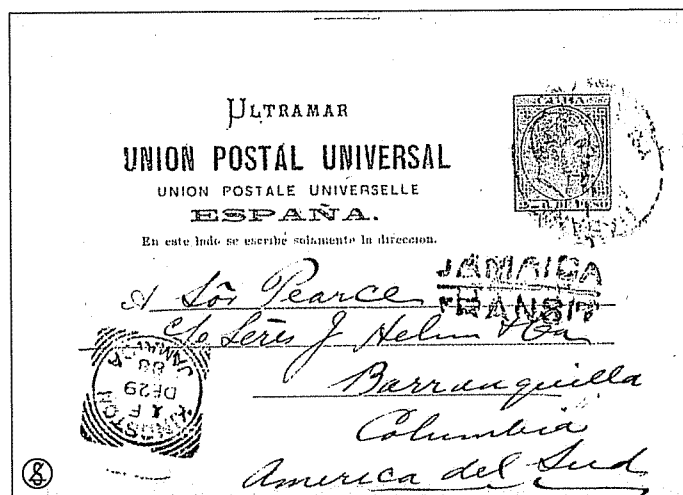 ULTRAMAR
UNION POSTAL UNIVERSAL
UNION POSTALE UNIVERSELLE
ESPAÑA.
En este lado se escribe solamente la direccion.
CUBA
JAMAICA
TRANSIT
A Sõr Pearce
c/o Señs J Helm & Co
Barranquilla
Columbia
America del Sud
KINGSTON
F
DE 29
88
JAMAICA